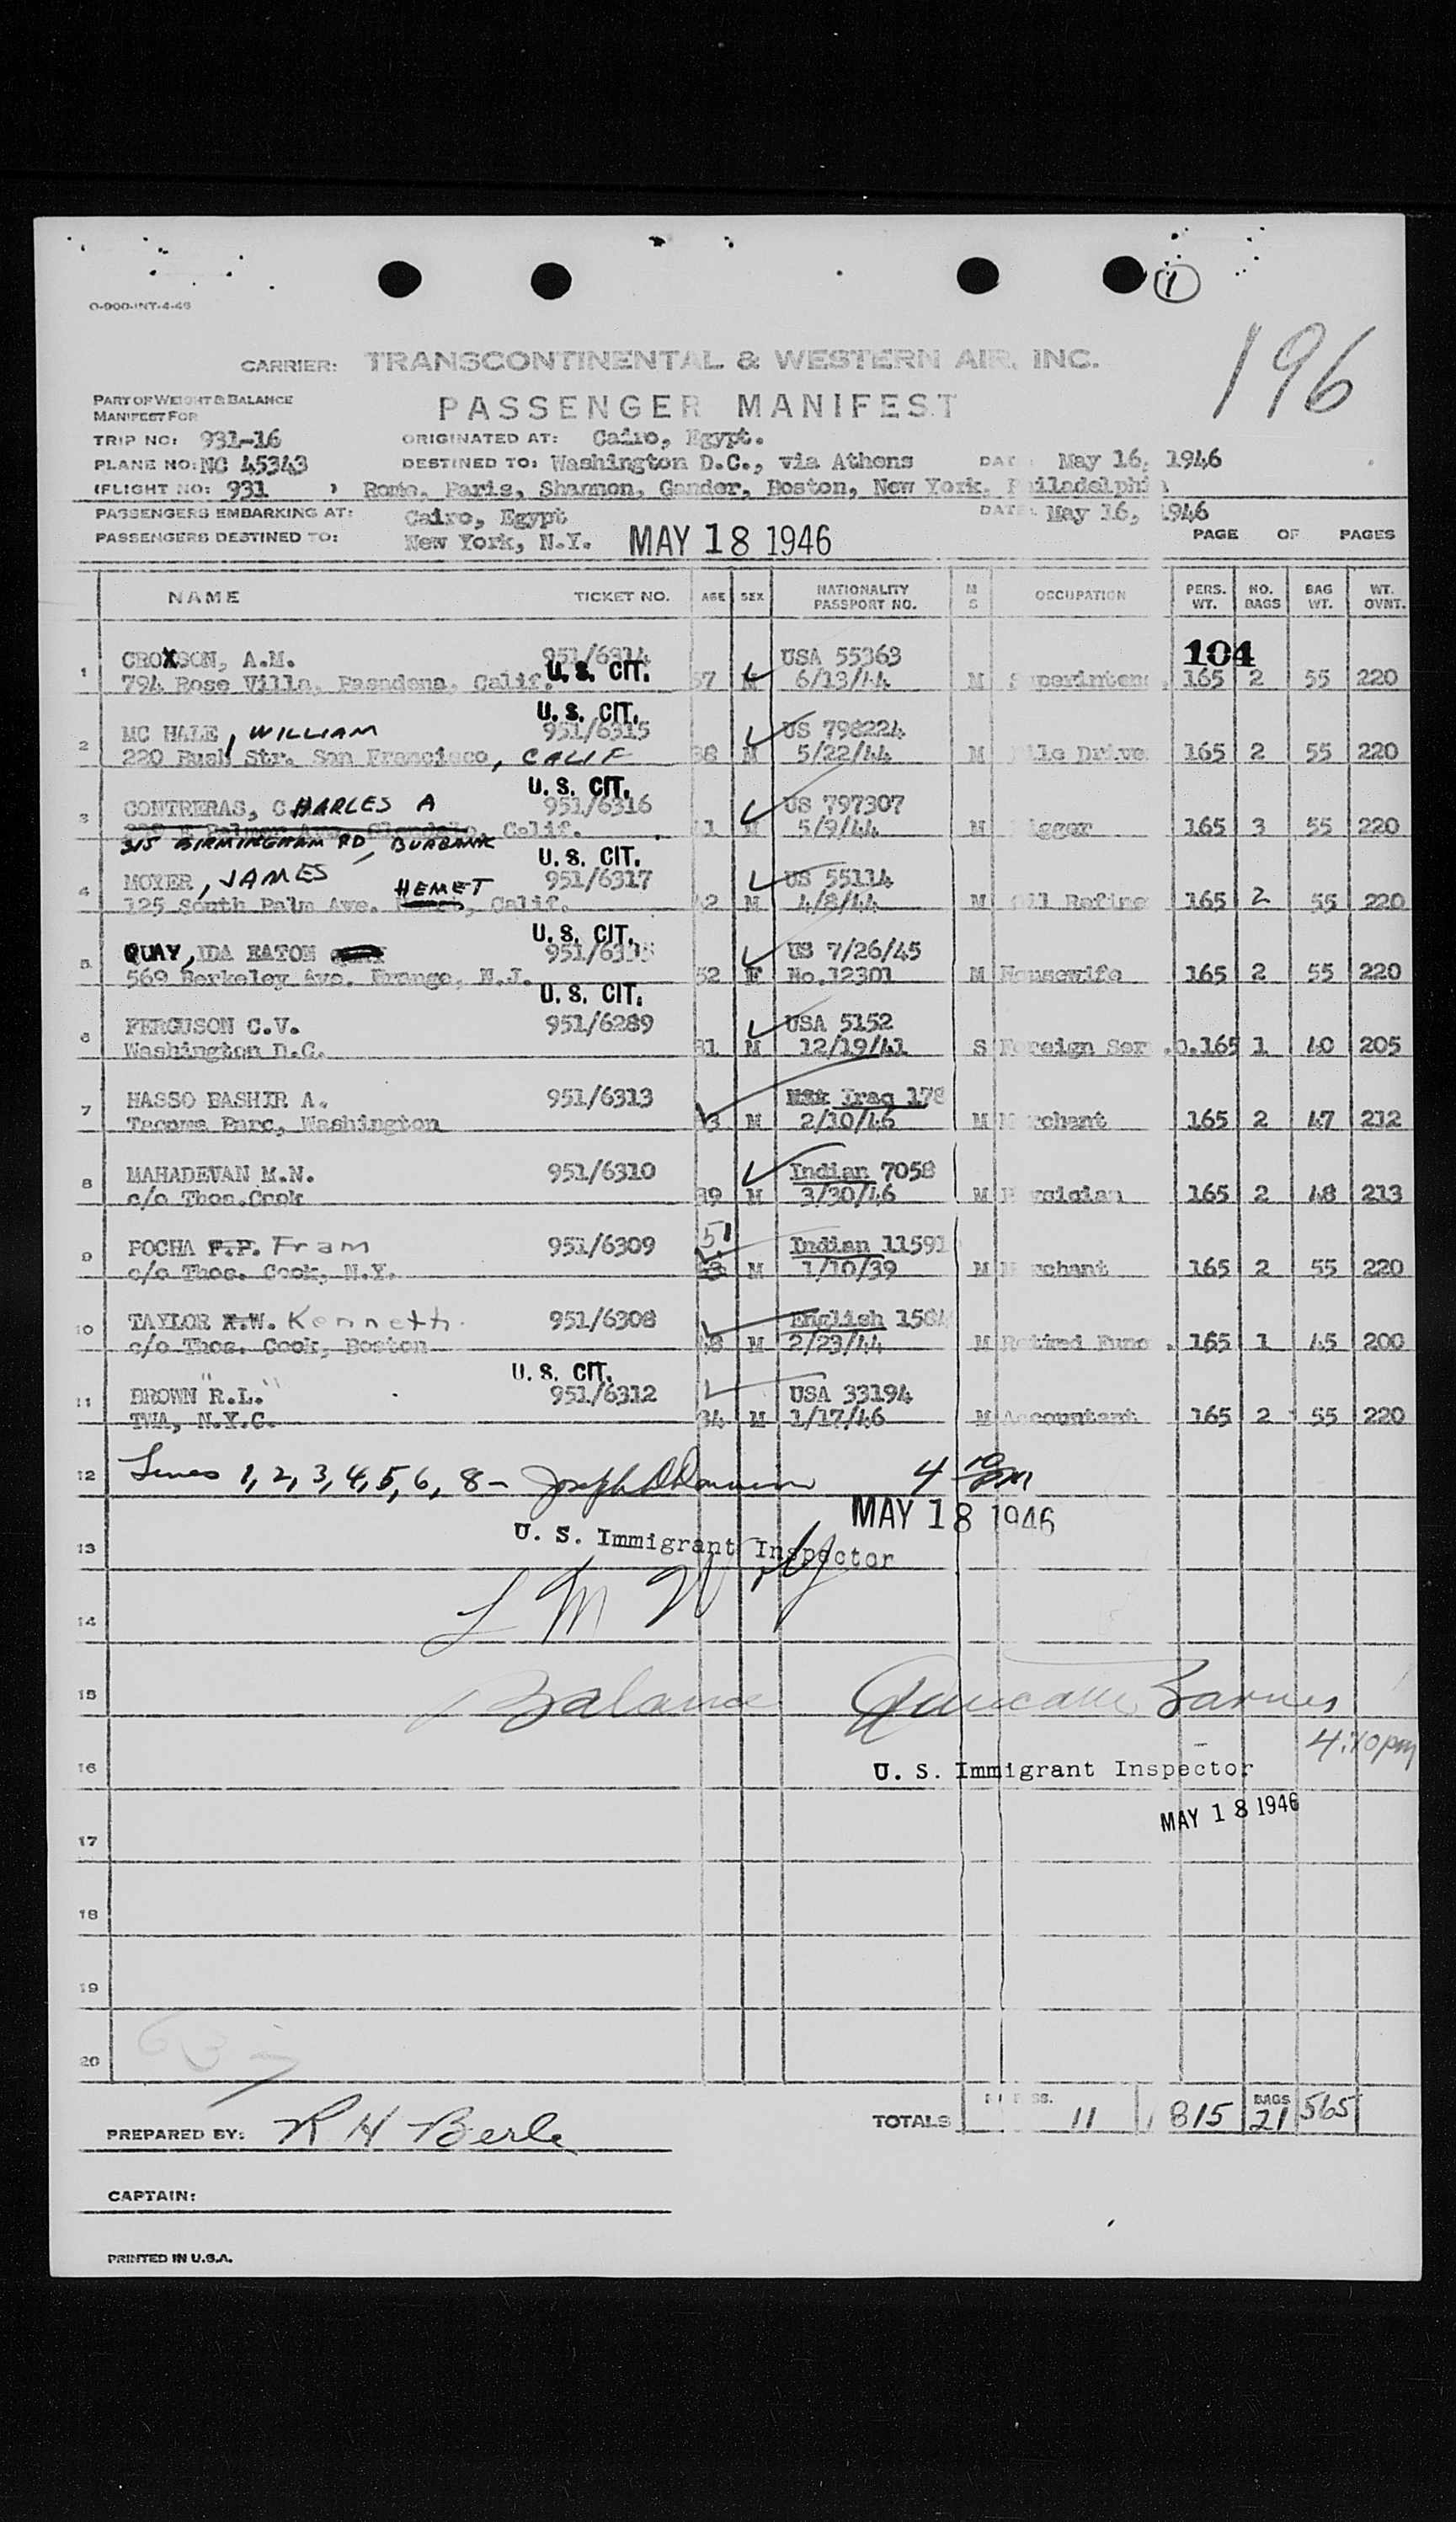 1
O-900-INT-4-46
196
CARRIER: TRANSCONTINENTAL & WESTERN AIR, INC.
PART OF WEIGHT & BALANCE
MANIFEST FOR
PASSENGER MANIFEST
TRIP NO: 931-16 ORIGINATED AT: Cairo, Egypt.
PLANE NO: NC 45343 DESTINED TO: Washington D.C., via Athens DAT May 16, 1946
(FLIGHT NO: 931 ) Rome, Paris, Shannon, Gander, Boston, New York, Philadelphia
PASSENGERS EMBARKING AT: Cairo, Egypt DATE May 16, 1946
PASSENGERS DESTINED TO: New York, N.Y. MAY 18 1946 PAGE OF PAGES
NAME TICKET NO. AGE SEX NATIONALITY PASSPORT NO. M S OCCUPATION PERS. WT. NO. BAGS BAG WT. WT. OVNT.
104
1 CROXSON, A.M. 951/6314 USA 55363
794 Rose Villa, Pasadena, Calif. U. S. CIT. 57 M 6/13/44 M Superinten 165 2 55 220
U. S. CIT.
2 MC HALE, WILLIAM 951/6315 US 798224
220 Bush Str. San Francisco, CALIF 38 M 5/22/44 M Pile Drive 165 2 55 220
U. S. CIT.
3 CONTRERAS, CHARLES A 951/6316 US 797307
Calif. 41 M 5/9/44 M Rigger 165 3 55 220
315 BIRMINGHAM RD, BURBANK
U. S. CIT.
4 MOYER, JAMES 951/6317 US 55114
125 South Palm Ave. HEMET, Calif. 42 M 4/8/44 M Oil Refine 165 2 55 220
U. S. CIT.
5 QUAY, IDA EATON US 7/26/45
569 Berkeley Ave. Orange, N.J. 52 F No.12301 M Housewife 165 2 55 220
U. S. CIT.
6 FERGUSON C.V. 951/6289 USA 5152
Washington D.C. 31 M 12/19/41 S Foreign Ser .O. 165 1 40 205
7 HASSO BASHIR A. 951/6313 Iraq 178
Tacoma Parc, Washington 43 M 2/10/46 M Merchant 165 2 47 212
8 MAHADEVAN M.N. 951/6310 Indian 7058
c/o Thos.Cook 39 M 3/30/46 M Physician 165 2 48 213
9 POCHA F.P. Fram 951/6309 51 Indian 11591
c/o Thos. Cook, N.Y. M 1/10/39 M Merchant 165 2 55 220
10 TAYLOR K.W. Kenneth. 951/6308 English 1584
c/o Thos. Cook, Boston 48 M 2/23/44 M Retired Func . 165 1 45 200
U. S. CIT.
11 BROWN "R.L." 951/6312 USA 33194
TWA, N.Y.C. 34 M 1/17/46 M Accountant 165 2 55 220
12 Lines 1, 2, 3, 4, 5, 6, 8 - Joseph 4 10 PM
MAY 18 1946
13 U. S. Immigrant Inspector
14 L M
15 Balance Barnes
4:10 pm
16 U. S. Immigrant Inspector
MAY 18 1946
17
18
19
20
TOTALS 11 1815 BAGS 21 565
PREPARED BY: R H Berle
CAPTAIN:
PRINTED IN U.S.A.